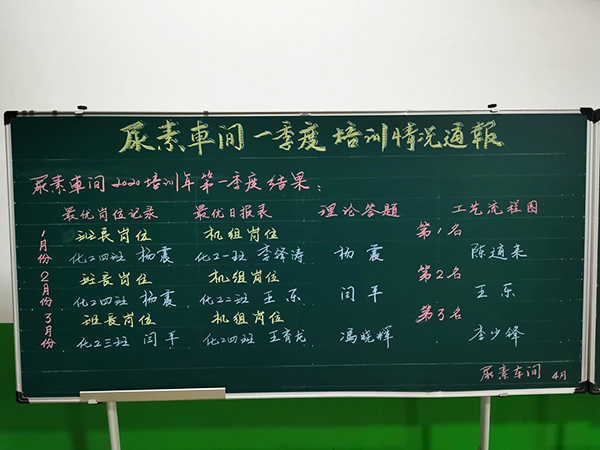 尿素車间一季度培训情况通報
尿素車间2020培训年第一季度结果：
最优岗位记录 最优日报表 理论答题 工艺流程图
1月份 班長岗位 机组岗位 第1名
化2四班 杨震 化2一班 李泽涛 杨震 陈通来
2月份 班長岗位 机组岗位 第2名
化2四班 杨震 化2二班 王东 闫平 王东
3月份 班長岗位 机组岗位 第3名
化2三班 闫平 化2四班 王育龙 冯晓辉 李少锋
尿素车间 4月